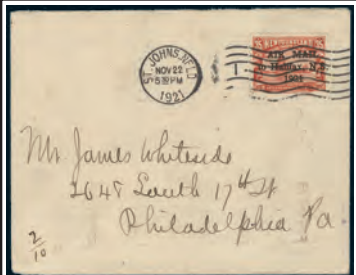 ST. JOHN'S, NFLD
NOV 22
5 30 PM
1921
AIR MAIL
to Halifax, N.S.
1921
Mr. James Whiteside
2648 South 17th St
Philadelphia Pa.
2/10